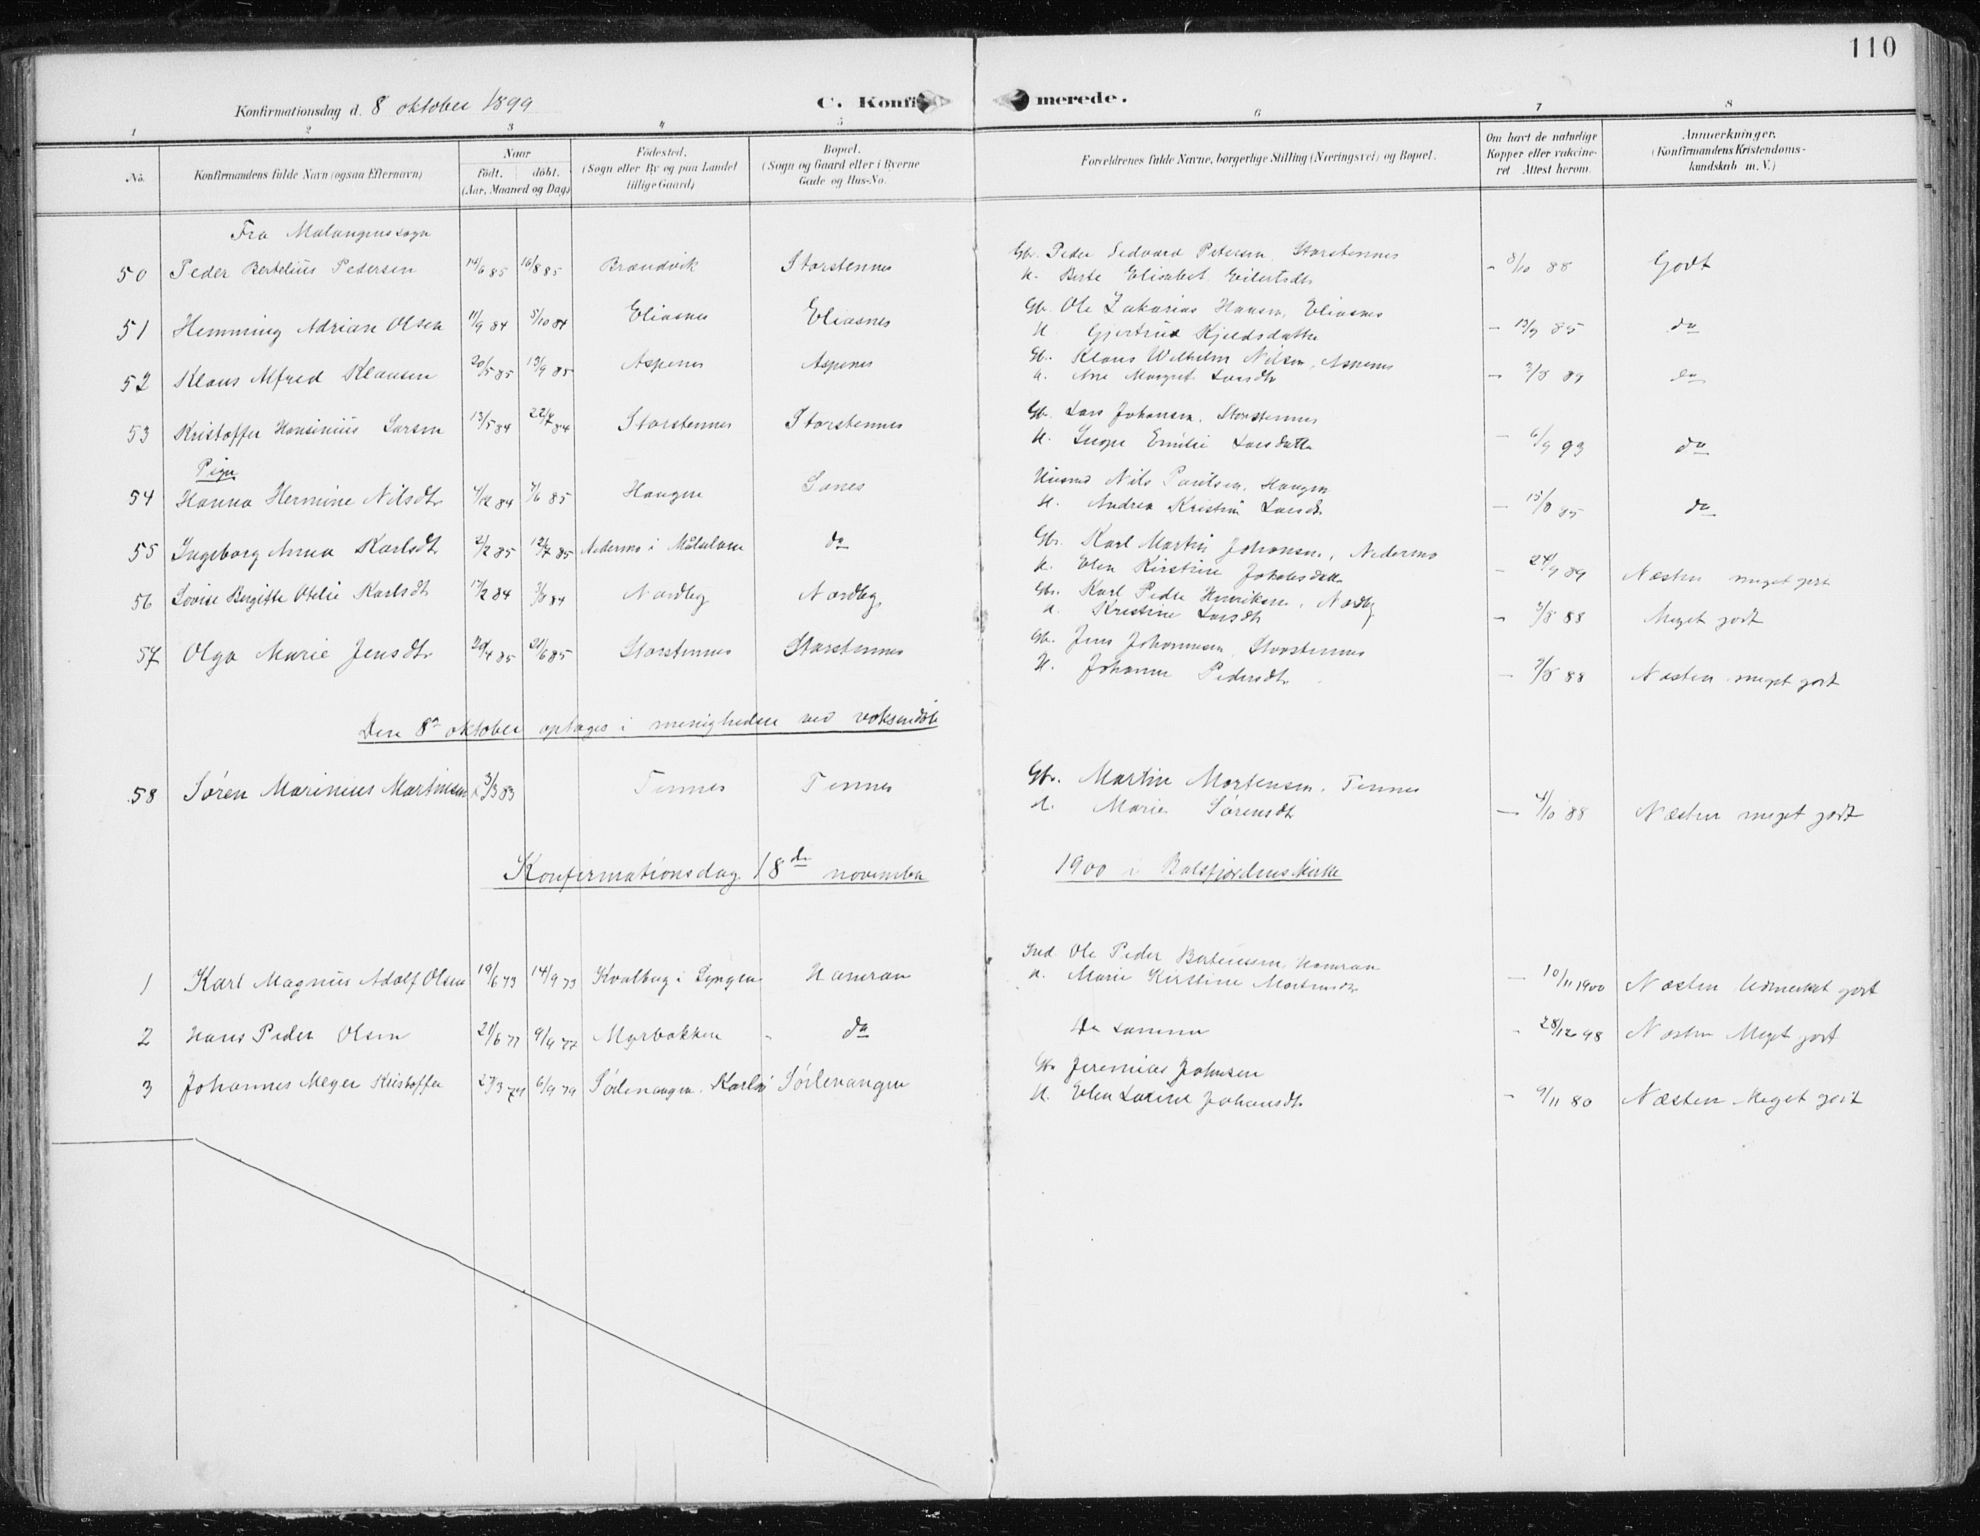 110
Konfirmationsdag d. 8 oktober 1899
C. Konfirmerede.
1 2 3 4 5 6 7 8
No.
Konfirmandens fulde Navn (ogsaa Efternavn)
Naar
födt. döbt.
(Aar, Maaned og Dag)
Födested.
(Sogn eller By og paa Landet
tillige Gaard)
Bopæl.
(Sogn og Gaard eller i Byerne
Gade og Hus-No.
Forældrenes fulde Navne, borgerlige Stilling (Næringsvei) og Bopæl.
Om havt de naturlige
Kopper eller vakcine-
ret Attest herom.
Anmerkninger.
(Konfirmandens Kristendoms-
kundskab m. V.)
Fra Malangens sogn
50 Peder Bertelius Pedersen 14/6 85 16/8 85 Brændvik Storstennes Gbr. Peder Edvard Petersen, Storstennes
H. Berte Elisabet Eilertsdtr - 8/10 88 Godt
51 Hemming Adrian Olsen 11/9 84 5/10 84 Eliasnes Eliasnes Gb. Ole Zakarias Hansen, Eliasnes
H. Gjertrud Kjeldsdatter - 13/9 85 do
52 Klaus Alfred Klausen 20/5 85 13/9 85 Aspenes Aspenes Gb. Klaus Wilhelm Nilsen, Aspenes
H. Ane Margret Larsdtr - 7/8 89 do
53 Kristoffer Hansinius Larsen 13/5 84 22/7 84 Storstennes Storstennes Gb. Lars Johansen, Storstennes
H. Inger Emilie Larsdatter - 6/9 93 do
Piger
54 Hanna Hermine Nilsdtr 4/12 84 7/6 85 Haugen Sanes Nils Paulsen, Haugen
H. Andrea Kristine Larsdtr - 15/8 85 do
55 Ingeborg Anna Karlsdtr 2/2 85 12/7 85 Nedermo i Målselven do Gbr. Karl Martin Johansen, Nedermo
H. Elen Kirstine Johansdatter - 24/9 89 Næsten meget godt
56 Lovise Birgitte Otelie Karlsdtr 17/2 84 3/8 84 Nordby Nordby Gbr. Karl Peder Henriksen, Nordby
H. Kristine Larsdtr - 3/8 88 Meget godt
57 Olga Marie Jensdtr 20/4 85 21/6 85 Storstennes Storstennes Gb. Jens Johannesen, Storstennes
H. Johanna Pedersdtr - 7/8 88 Næsten meget godt
Den 8de oktober optages i menigheden ved voksendåb
58 Søren Marinius Martinsen 3/3 83 Tennes Tennes Gbr. Martin Mortensen, Tennes
H. Marie Sørensdtr - 4/10 88 Næsten meget godt
Konfirmationsdag 18de november 1900 i Balsfjordens Kirke
1 Karl Magnus Adolf Olsen 19/6 73 14/9 73 Kvalberg i Lyngen Hamran Ind. Ole Peder Berteussen, Hamran
H. Marie Kirstine Mortensdtr - 10/11 1900 Næsten Udmerket godt
2 Hans Peder Olsen 21/6 77 9/9 77 Myrbakken - do De samme - 28/12 98 Næsten Meget godt
3 Johannes Meyer Kristoffer 27/3 79 6/9 79 Sørlenangen. Karlsö Sørlenangen Gb. Jeremias Johnsen
H. Elen Lovise Johansdtr - 9/11 80 Næsten Meget godt